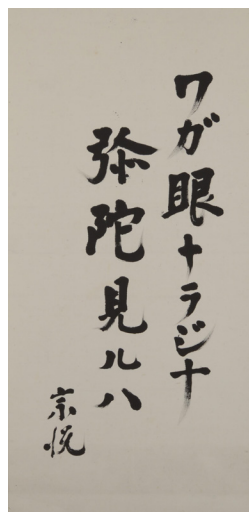 ワガ眼ナラジナ
弥陀見ルハ
宗悦